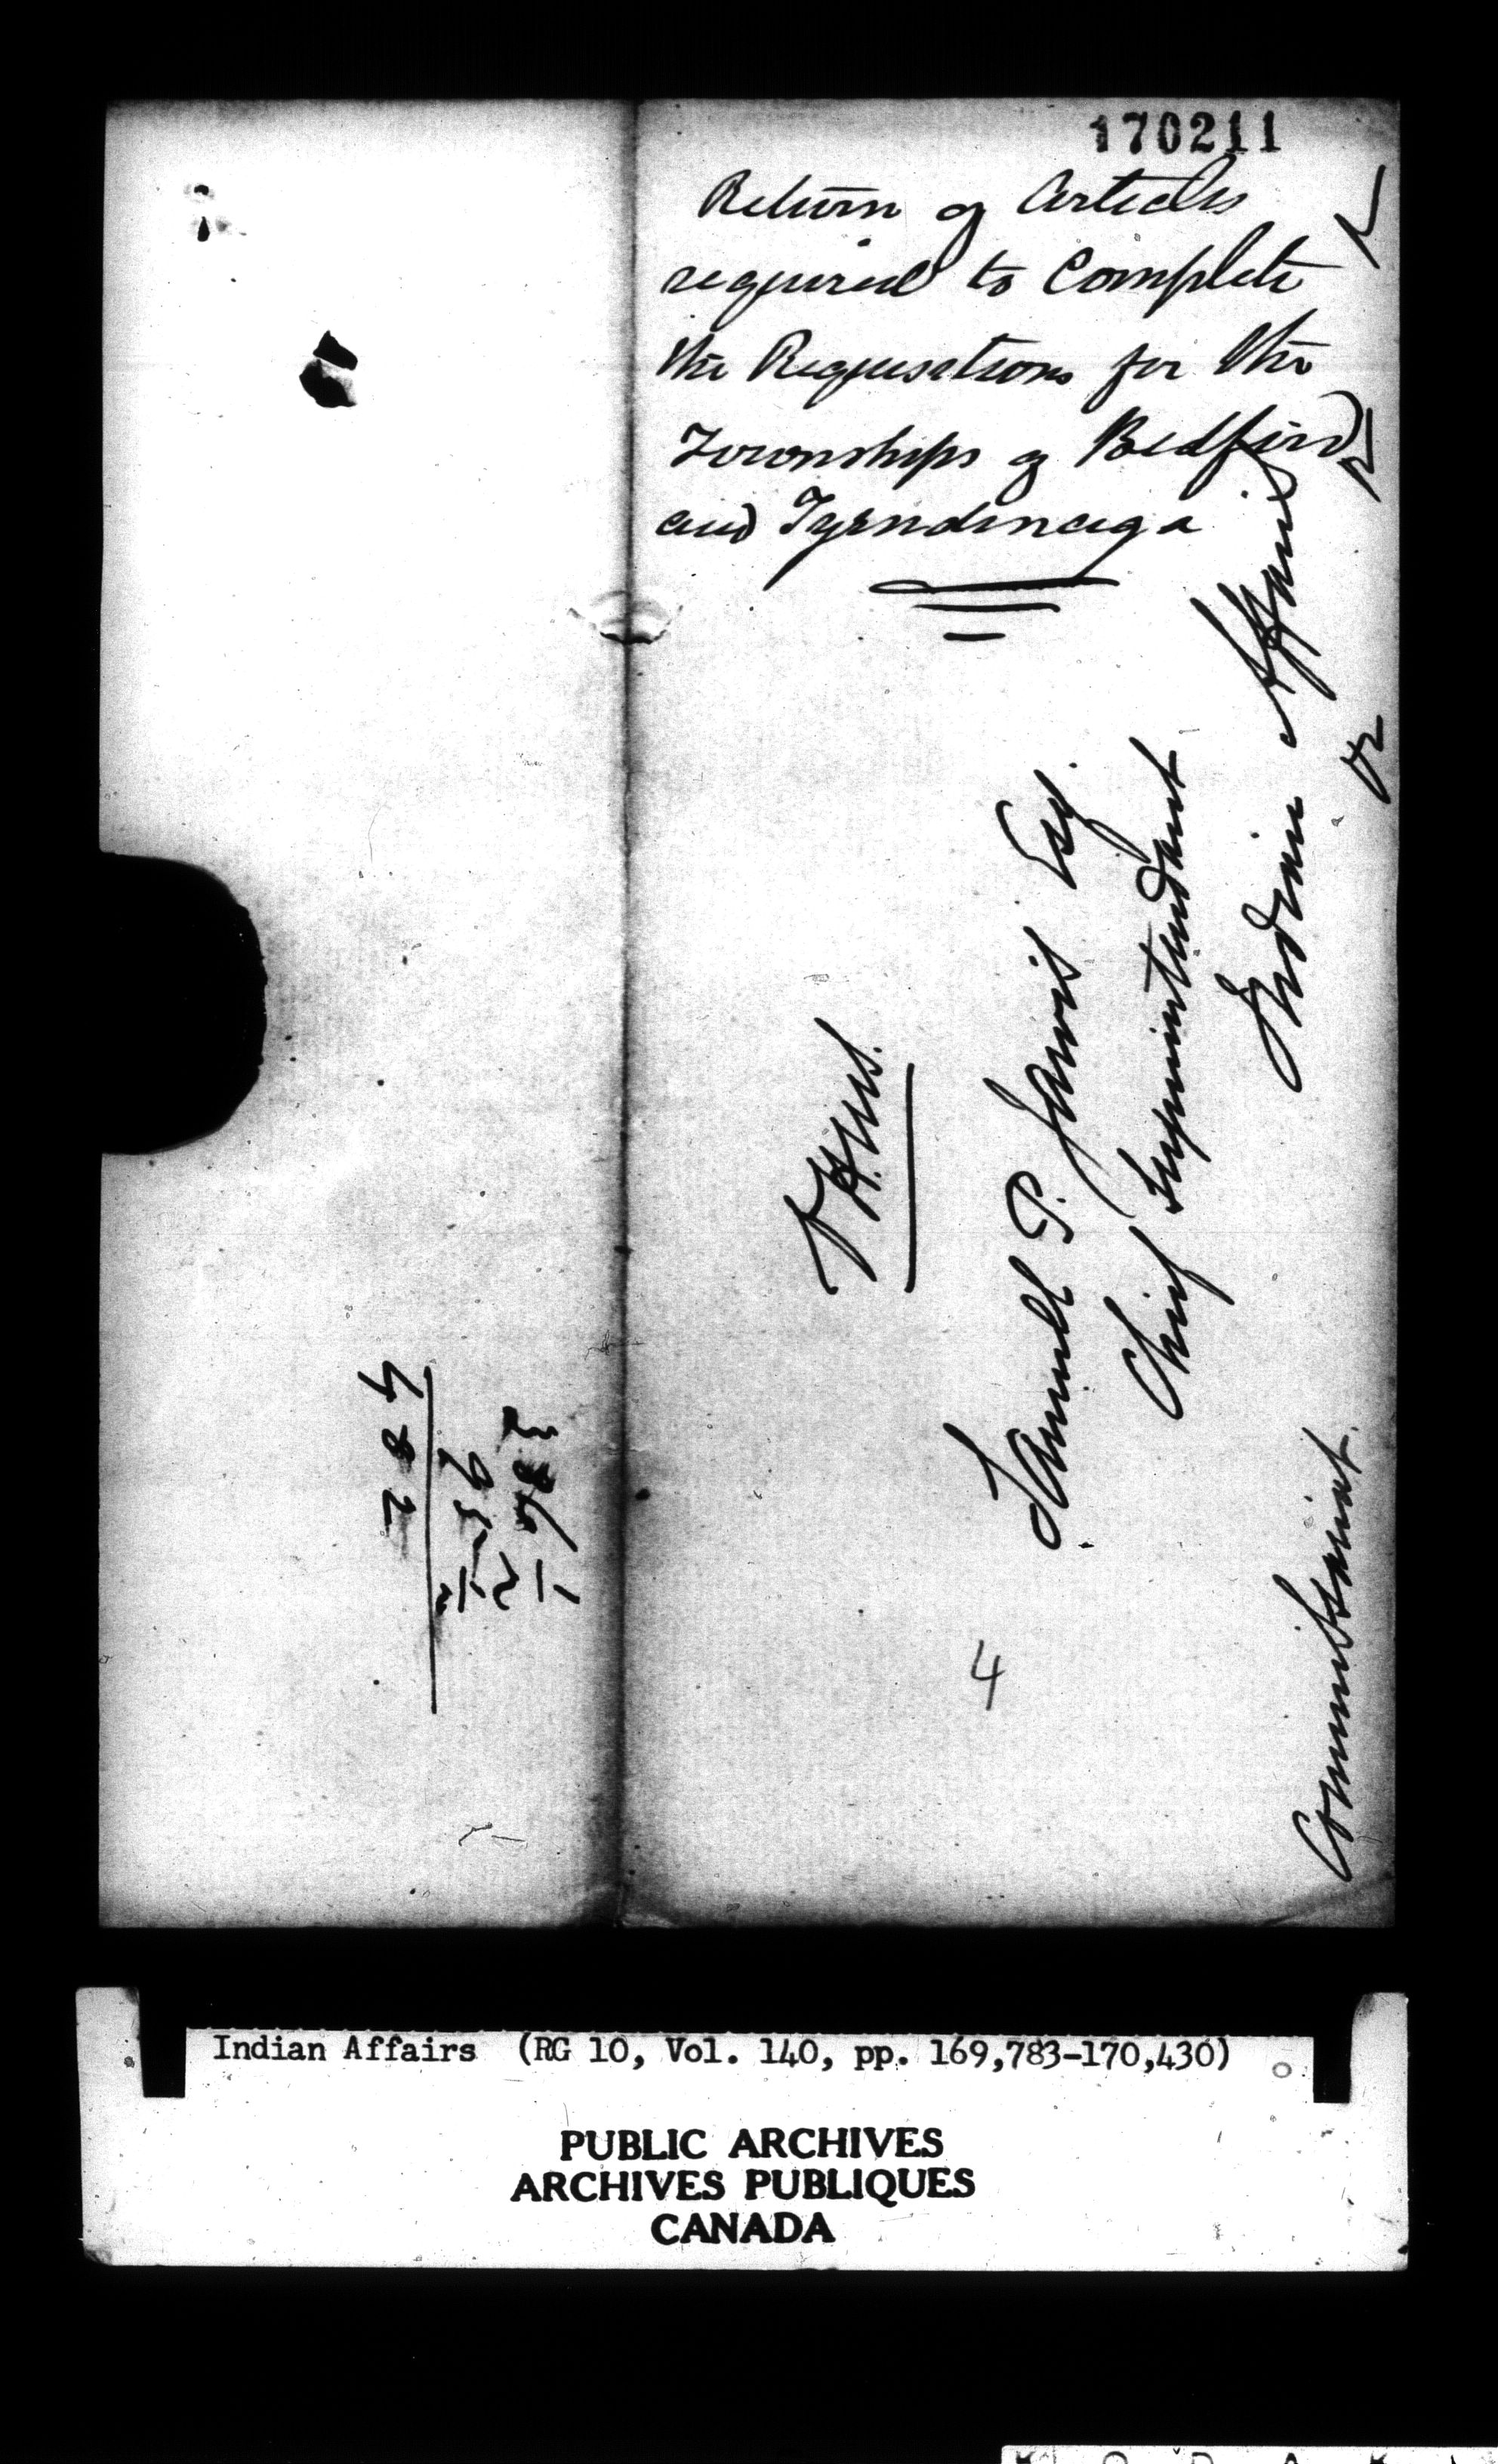 170211
Return of Articles
required to Complete
the Requisations for the
Townships of Bedford
and Tyendenaga
Samuel P. Jarvis Esq.
Chief Superintendant
Indian Affairs
Commissariat.
4
Indian Affairs (RG 10, Vol. 140, pp. 169,783-170,430)
PUBLIC ARCHIVES
ARCHIVES PUBLIQUES
CANADA